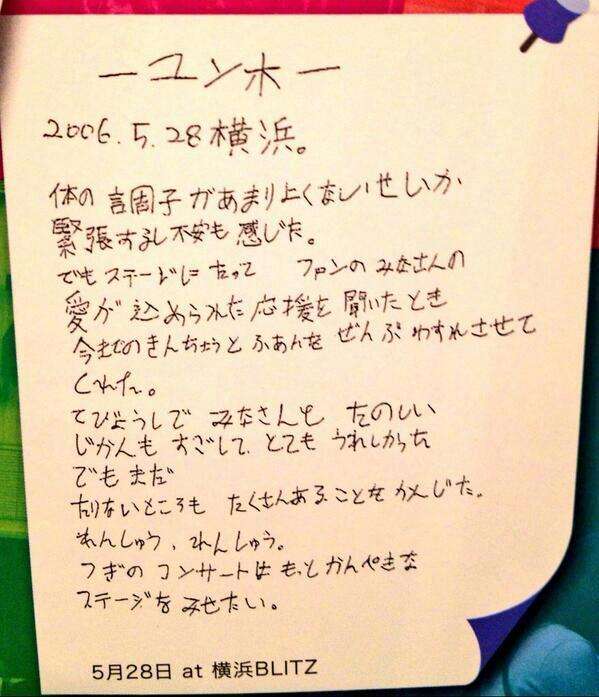 ーユンホー
2006.5.28横浜。
体の調子があまりよくないせいか
緊張するし不安も感じた。
でもステージにたって ファンのみなさんの
愛が込められた応援を聞いたとき
今までのきんちょうとふあんをぜんぶわすれさせて
くれた。
てびょうしでみなさんもたのしい
じかんもすごしてとてもうれしかった
でもまだ
たりないところもたくさんあることをかんじた。
れんしゅう、れんしゅう。
つぎのコンサートはもっとかんぺきな
ステージをみせたい。
5月28日 at 横浜BLITZ